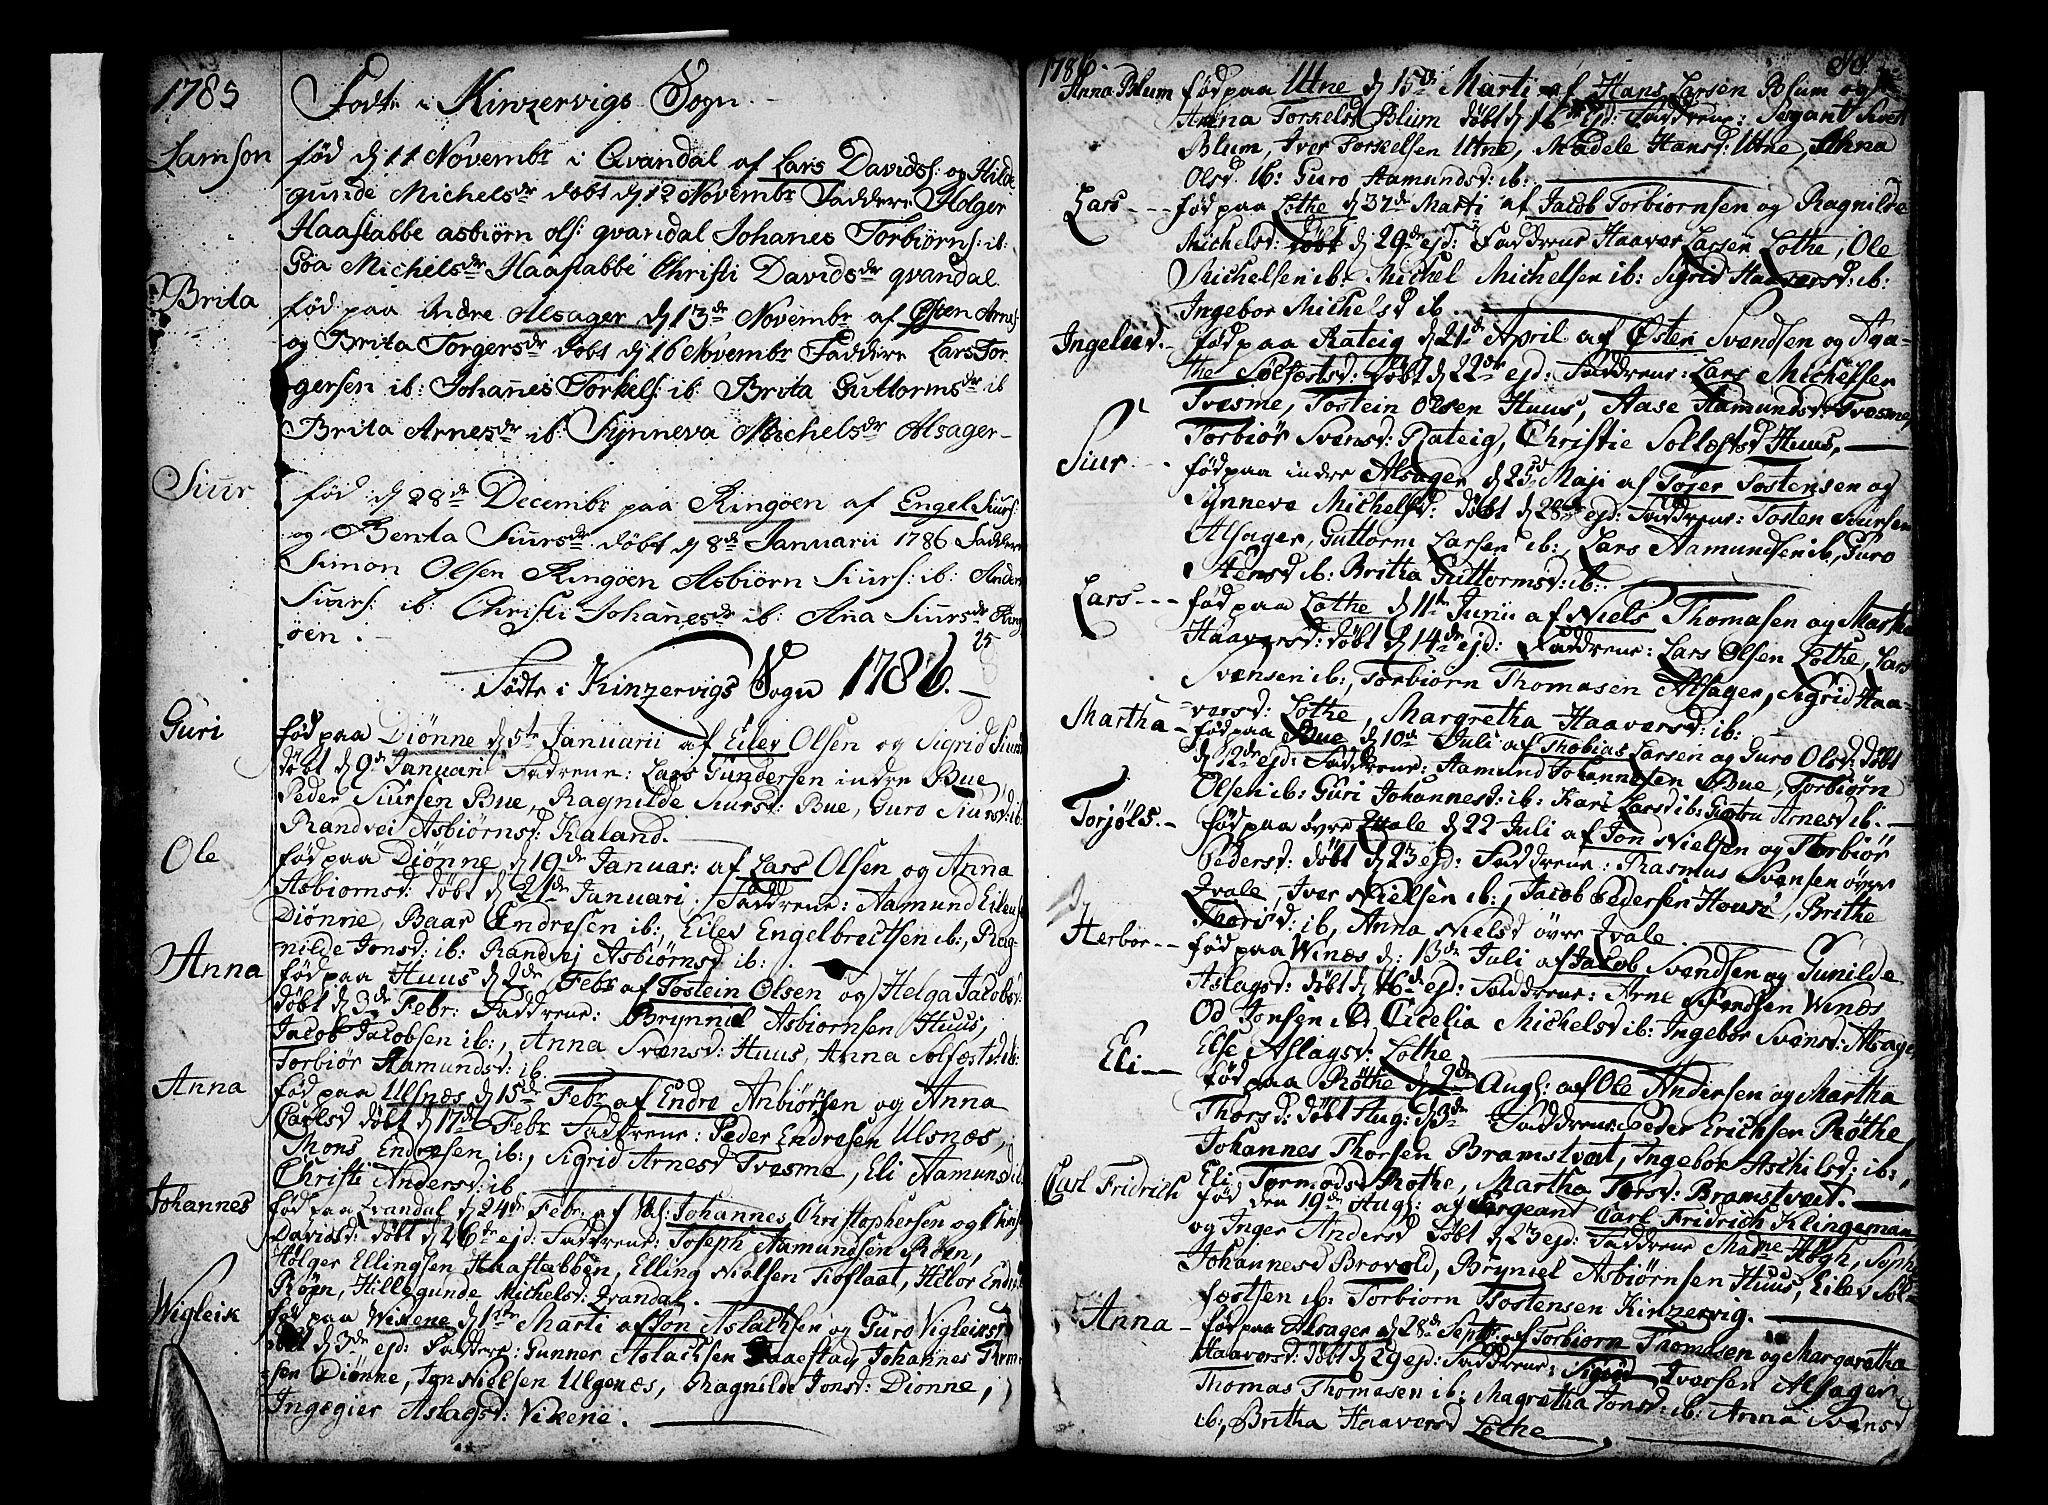 1785 Fødte i Kinzervigs Sogn.
Samson fød d 11 Novembr i Qvandal af Lars Davids: og Hilde
gunde Michelsdr døbt d 12 Novembr Faddere Holger
Haastabbe asbiørn ols: qvandal Johanes Torbiørns: ib:
Goa Michelsdr Haastabbe Christi Davidsdr qvandal
Brita fød paa indre Alsager d 13de Novembr af Østen Arnes
og Brita Torgersdr døbt d 16 Novembr Faddere Lars Tor
gersen ib: Johanes Torkels: ib Brita Guttormsdr ib
Brita Arnesdr ib: Synneva Michelsdr Alsager
Siur fød d 28de Decembr paa Ringøen af Engel Siurs:
og Benta Siursdr døbt d 8de Januarii 1786 Faddere
Simon Olsen Ringøen Asbiørn Siurs: ib: Anders
Siurs: ib: Christi Johanesdr ib: Ana Siursdr Ring
øen.
25
Fødte i Kinzervigs Sogn 1786.
Guri fød paa Diønne d 5te Januarii af Eilev Olsen og Sigrid Siursd
døbt d 9de Januari Fadrene: Lars Gundersen indre Bue
Peder Siursen Bue, Ragnilde Siursd: Bue, Guro Siursd: ib:
Randvei Asbiørnsd: Kaland.
Ole fød paa Diønne d 19de Januar: af Lars Olsen og Anna
Asbiornsd: døbt d 21de Januari. Faddrene: Aamund Eilevsen
Diønne, Baar Endresen ib: Eilev Engelbrectsen ib:, Rag-
nilde Jonsd: ib: Randvej Asbiørnsd ib:
Anna fød paa Huus d 2de Febr af Tostein Olsen og Helga Jacobsd:
døbt d 3de Febr: Faddrene: Brynnil Asbiornsen Huus,
Jacob Jacobsen ib:, Anna Svensd: Huus, Anna Solfæstsd: ib:
Torbiør Aamundsd: ib.
Anna fød paa Ulsnæs d 15de Febr af Endre Anbiørsen og Anna
Carlsd døbt d 17de Febr Faddrene: Peder Endresen Ulsnæs,
Mons Endresen ib:, Sigrid Arnesd Tvesme, Eli Aamundsd ib:
Christi Andersd: ib
Johannes fød paa Qvandal d 24de Febr: af Johannes Christophersen og
Davidsd: døbt d 26de ejd: Faddrene: Joseph Aamundsen Røen,
Holger Ellingsen Haastabben, Elling Nielsen Tioflaat, Hilor Endresd
Røen, Hillegunde Michelsd: Qvandal.
Wigleik fød paa Wikene d 1ste Marti af Jon Aslachsen og Guro Vigleiksd
døbt d 3de ejd: Faddrene: Gunner Aslachsen Johannes Torm-
sen Diønne, Jon Nielsen Ulgenæs, Ragnilde Jonsd: Dionne,
Ingegier Aslagsd: Vikene.
1786.
Anna Blum fød paa Utne d 15de Marti af Hans Larsen Blum og
Anna Torkelsd Blum døbt d 16de ejd: Faddrene: Sergant Siver
Blum, Iver Torkelsen Utne, Madele Hansd: Utne, Anna
Olsd. ib: Guro Aamundsd: ib:
Lars fød paa Lothe d 27de Marti af Jacob Torbiornsen og Ragnilde
Michelsd: døbt d 29de ejd: Faddrene Haaver Larsen Lothe, Ole
Michelsen ib: Michel Michelsen ib: Sigrid Haaversd: ib:
Ingebor Michelsd ib.
Ingelud fød paa Rateig d 21de April af Østen Svendsen og Aga-
the Solfæstsd: døbt d 22de ejd: Faddrene: Lars Michelsen
Tvesme, Tostein Olsen Huus, Aase Aamundsd: Tvesme,
Torbiør Svensd: Rateig, Christie Solfæstsd Huus,
Siur fød paa indre Alsager d 25de Maji af Tosten Tostensen og
Synneve Michelsd: døbt d 28de ejd: Faddrene: Tosten Siursen
Alsager, Guttorm Larsen ib:, Lars Aamundsen ib, Guro
Stensd ib: Britha Guttormsd: ib:
Lars fød paa Lothe d 11te Junii af Niels Thomasen og Martha
Haaversd: døbt d 14de ejd: Faddrene: Lars Olsen Lothe, Lars
Svensen ib:, Torbiorn Thomasen Alsager, Sigrid Haa-
versd: Lothe, Margretha Haaversd: ib:
Martha fød paa Bue d 10de Juli af Thobias Larsen og Guro Olsd: døbt
d 12de ejd: Faddrene: Aamund Johannesen Bue, Torbiørn
Olsen ib: Guri Johannesd: ib: Kari Larsd ib: Arnesd ib.
Torjøls. fød paa øvre Qvale d 22 Juli af Jon Nielsen og Torbiør
Pedersd: døbt d 23 ejd: Faddrene: Rasmus Svensen øvre
Qvale, Iver Nielsen ib:, Jacob Pedersen House, Brithe
Thorisd: ib, Anna Nielsd øvre Qvale.
Herbor fød paa Winæs d: 13de Juli af Jacob Svendsen og Gunilde
Aslagsd: døbt d 16de ejd: Faddrene: Arne Svendsen Winæs
Od Jonsen ib Cicelia Michelsd ib: Ingebor Svensd: Alsager
Else Aslagsd: Lothe
Eli fød paa Røthe d 2de Aug: af Ole Andersen og Martha
Thorsd: døbt Aug: d 3de Faddrene: Peder Erichsen Røthe,
Johannes Thorsen Bramstvæt, Ingebor Aschilsd: ib:,
Eli Tormodsd Røthe, Martha Torsd: Bramstvæt.
Carl Fridrich fød den 19de Aug: af Sergeant Carl Fridrich Klingeman
og Inger Andersd døbt d 23 ejd: Faddrene Madme Høgh, Soph
Johannesd Brovold, Bryniel Asbiørnsen Huus, Eilev Sol-
fæstsen ib: Torbiorn Tostensen Kinzervig.
Anna fød paa Alsager d 28de Septb: af Torbiorn Thomasen og Margaretha
Haaversd: døbt d 29 ejd: Faddrene: Sigvod Iversen Alsager
Thomas Thomasen ib: Magretha Jonsd: ib: Anna Svensd
ib:, Britha Haaversd Lothe